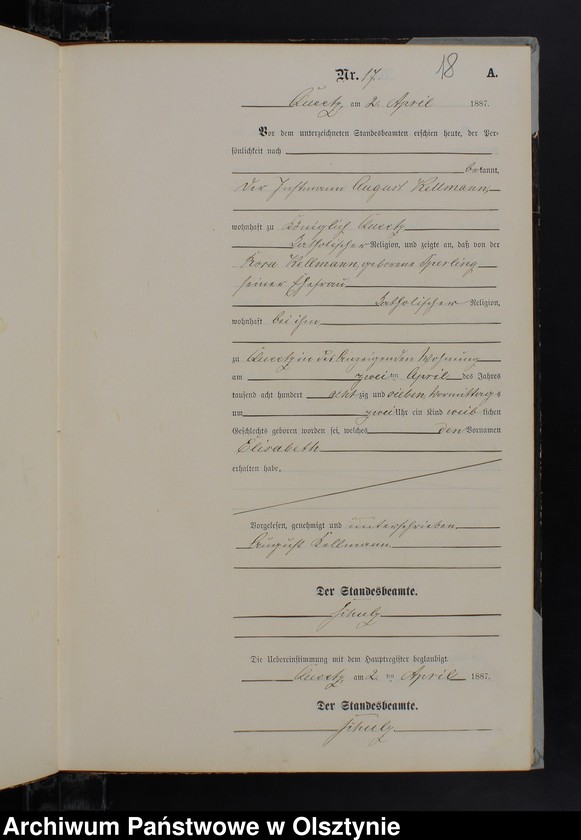 18
Nr. 17. A.
Queetz, am 2. April 1887.
Vor dem unterzeichneten Standesbeamten erschien heute, der Per-
sönlichkeit nach
bekannt,
der Instmann August Kellmann,
wohnhaft zu Königlich Queetz
katholischer Religion, und zeigte an, daß von der
Rosa Kellmann, geborene Sperling
seiner Ehefrau
katholischer Religion,
wohnhaft bei ihm
zu Queetz in des Anzeigenden Wohnung
am zweiten April des Jahres
tausend acht hundert achtzig und sieben Vormittags
um zwei Uhr ein Kind weiblichen
Geschlechts geboren worden sei, welches den Vornamen
Elisabeth
erhalten habe.
Vorgelesen, genehmigt und unterschrieben.
August Kellmann
Der Standesbeamte.
Schulz
Die Uebereinstimmung mit dem Hauptregister beglaubigt.
Queetz, am 2. ten April 1887.
Der Standesbeamte.
Schulz
Archiwum Państwowe w Olsztynie